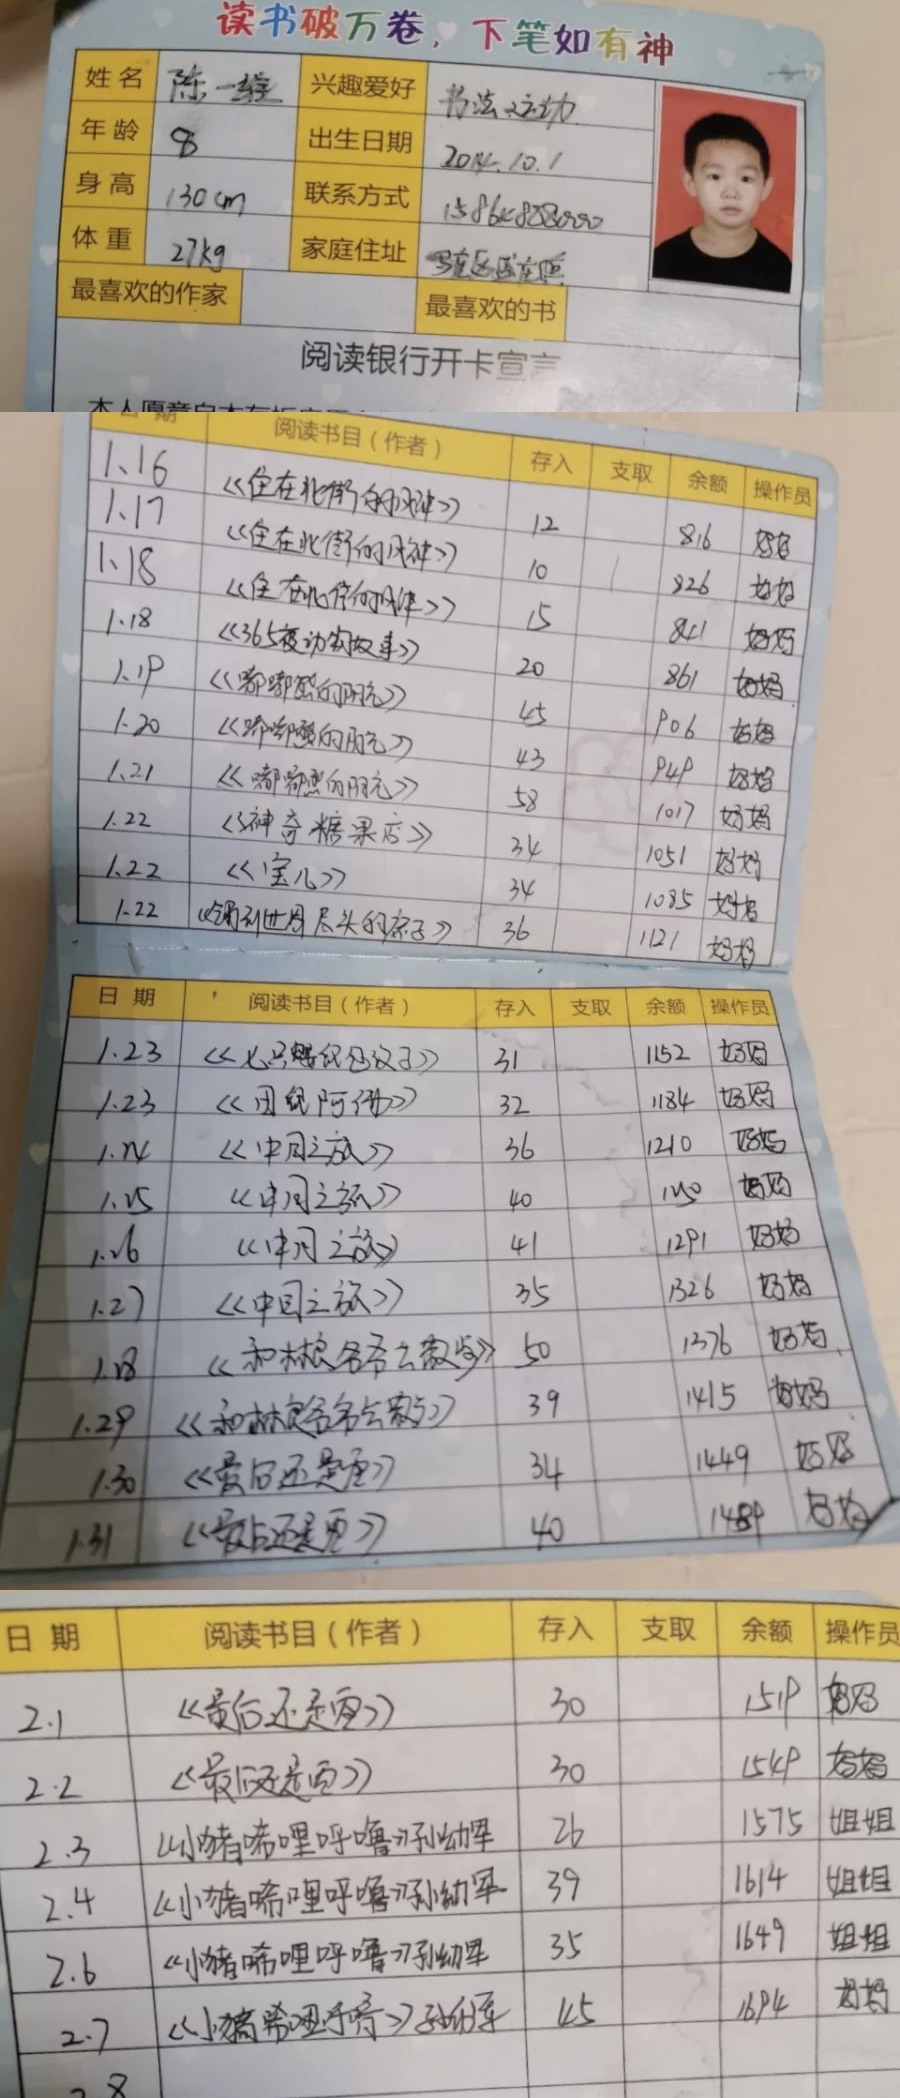 读书破万卷，下笔如有神
姓名 陈一 兴趣爱好 书法 运动
年龄 8 出生日期 2014.10.1
身高 130cm 联系方式
体重 27kg 家庭住址
最喜欢的作家 最喜欢的书
阅读银行开卡宣言
日期 阅读书目（作者） 存入 支取 余额 操作员
1.16 《住在北街的风神》 12 816 妈妈
1.17 《住在北街的风神》 10 826 妈妈
1.18 《住在北街的风神》 15 841 妈妈
1.18 《365夜动物故事》 20 861 妈妈
1.19 《嘟嘟熊的阳光》 45 906 妈妈
1.20 《嘟嘟熊的阳光》 43 949 妈妈
1.21 《嘟嘟熊的阳光》 58 1017 妈妈
1.22 《神奇糖果店》 34 1051 妈妈
1.22 《宝儿》 34 1085 妈妈
1.22 世界尽头的 》 36 1121 妈妈
日期 阅读书目（作者） 存入 支取 余额 操作员
1.23 31 1152 妈妈
1.23 《 阿 》 32 1184 妈妈
1.24 《中国之旅》 36 1210 妈妈
1.25 《中国之旅》 40 1250 妈妈
1.26 《中国之旅》 41 1291 妈妈
1.27 《中国之旅》 35 1326 妈妈
1.28 《和林良爷爷去散步》 50 1376 妈妈
1.29 《和林良爷爷去散步》 39 1415 妈妈
1.30 《最后还是 》 34 1449 妈妈
1.31 《最后还是 》 40 1489 妈妈
日期 阅读书目（作者） 存入 支取 余额 操作员
2.1 《最后还是 》 30 1519 妈妈
2.2 《最后还是 》 30 1549 妈妈
2.3 《小猪唏哩呼噜》孙幼军 26 1575 姐姐
2.4 《小猪唏哩呼噜》孙幼军 39 1614 姐姐
2.6 《小猪唏哩呼噜》孙幼军 35 1649 姐姐
2.7 《小猪唏哩呼噜》孙幼军 45 1694 妈妈
2.8